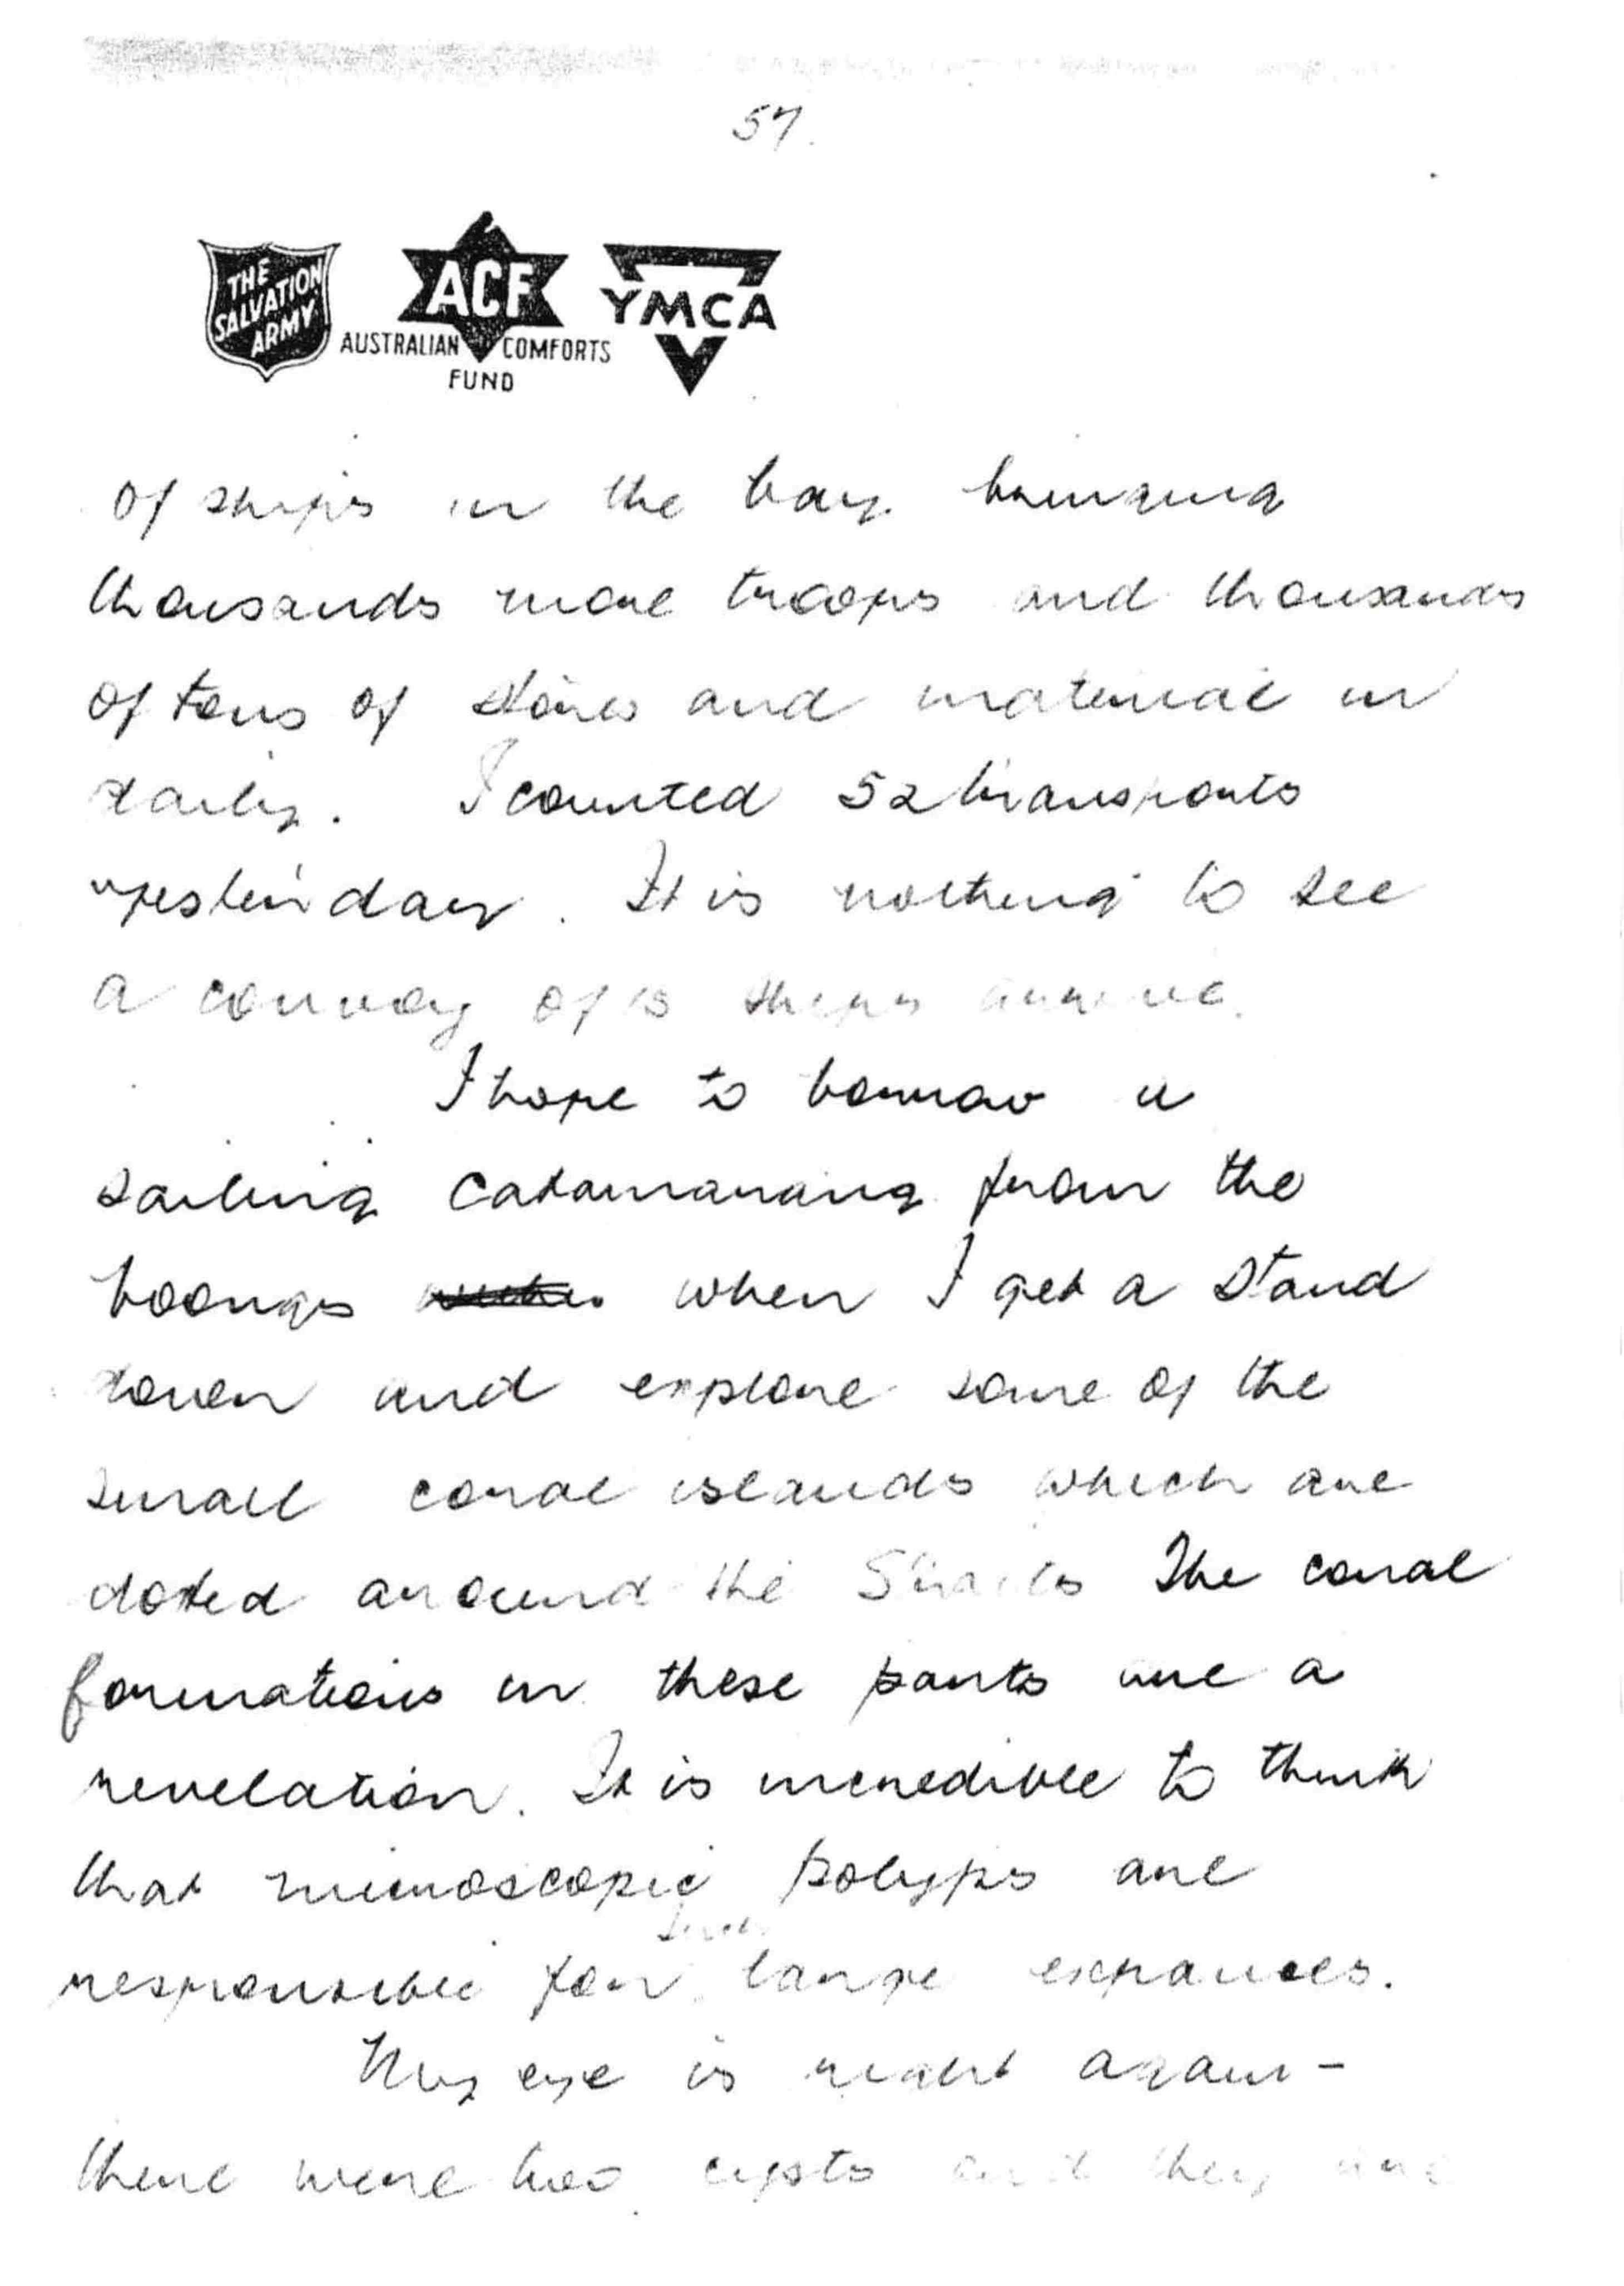 57.
THE
SALVATION
ARMY
ACF
AUSTRALIAN COMFORTS
FUND
YMCA
of ships in the bay bringing
thousands more troops and thousands
of tons of stores and material in
daily. I counted 52 transports
yesterday. It is nothing to see
a convoy of 15 ships arrive.
I hope to borrow a
sailing catamarang from the
boongs when I get a stand
down and explore some of the
small coral islands which are
doted around the Straits The coral
formations in these parts are a
revelation. It is incredible to think
that microscopic polyps are
such
responsible for large expances.
My eye is right again -
there were two cysts and they are